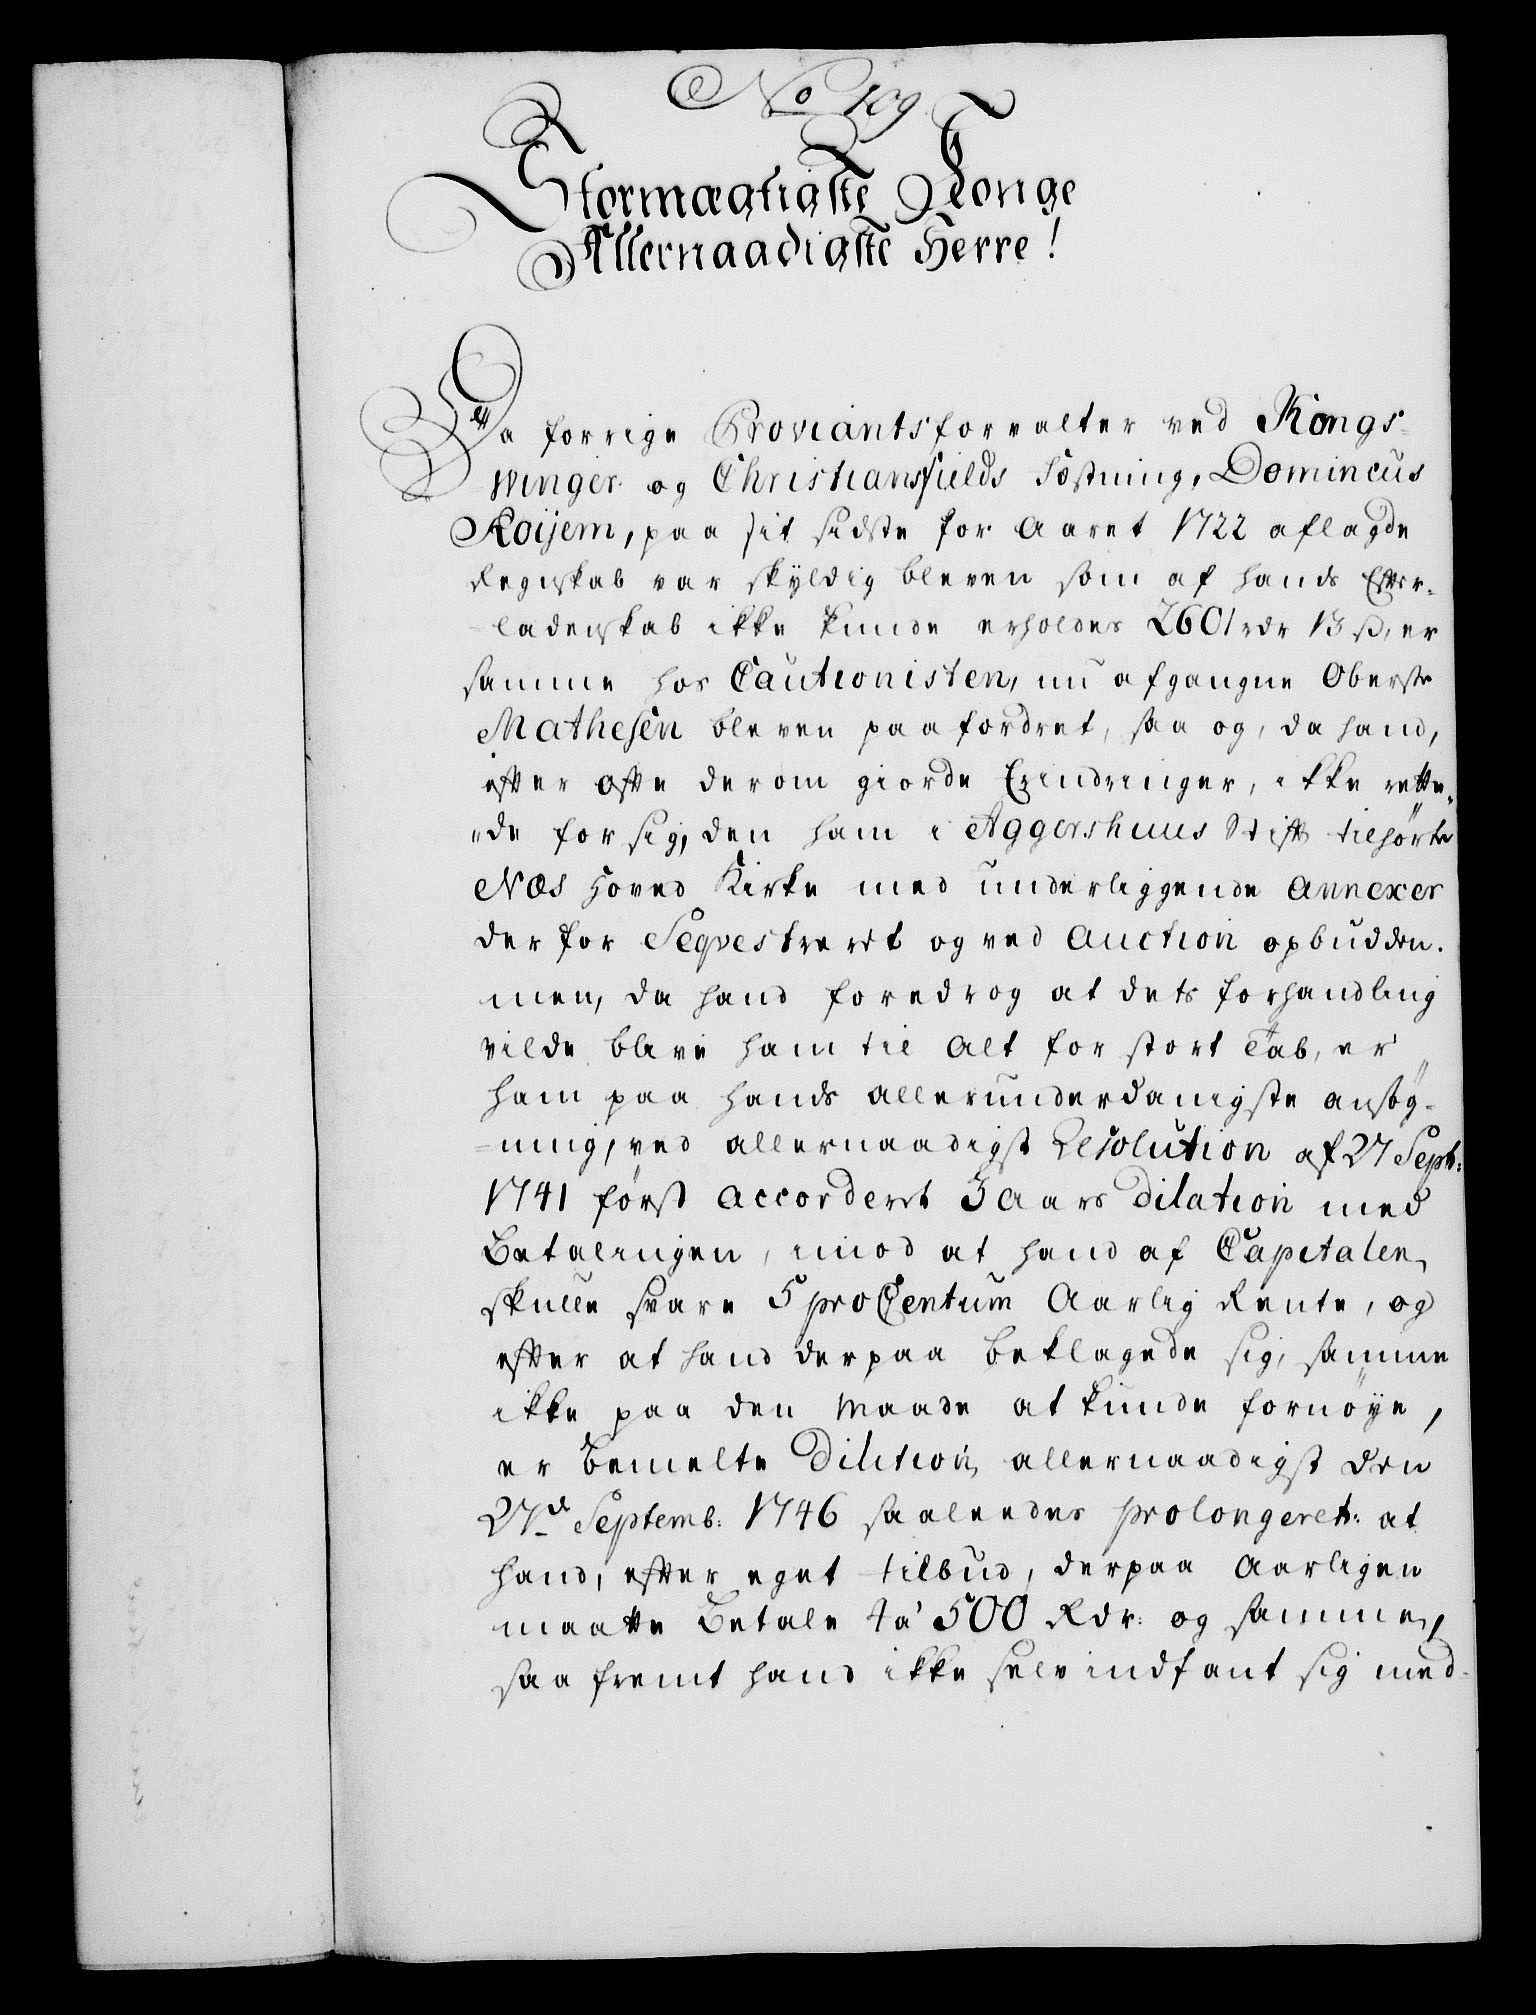 No 109
Stormægtigste Konge
Allernaadigste Herre!
Da forrige Proviantsforvalter ved Kongs-
winger og Christiansfields Fæstning, Domincus
Roijem, paa sit sidste for Aaret 1722 aflagde
Regnskab var skyldig bleven som af hands Efter-
ladenskab ikke kunde erholdes 2601 rdr 13 s, er
samme hos Cautionisten, nu afgangne Oberste
Mathesen bleven paafordret, saa og, da hand,
efter ofte derom giorde Erindringer, ikke rette-
de for sig, den ham i Aggershuus Stift tilhørte
Næs Hoved Kirke med underliggende Annexer
derfor Seqvestreret og ved Auction opbudden.
men, da hand foredrog at dets forhandling
vilde blive ham til alt for stort Tab, er
ham paa hands allerunderdanigste ansøg-
-ning, ved allernaadigst Resolution af 27 Septb:
1741 først accorderet 3 Aars Dilation med
Betalingen, imod at hand af Capitalen
skulle svare 5 proCentum Aarlig Rente, og
efter at hand derpaa beklagede sig, samme
ikke paa den Maade at kunde fornøye,
er bemelte Dilition allernaadigst den
27d Septemb: 1746 saaleedes prolongeret: at
hand, efter eget tilbud, derpaa Aarligen
maatte Betale 4 a 500 Rdr: og samme,
saa fremt hand ikke selv indfant sig med-